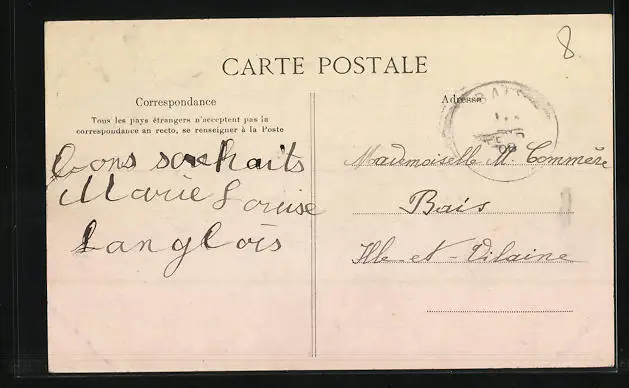 8
CARTE POSTALE
Correspondance
Tous les pays étrangers n'acceptent pas la
correspondance au recto, se renseigner à la Poste
bons souhaits
Marie Louise
Langlois
Adresse
BAIS
Mademoiselle M. Commère
Bais
Ille-et-Vilaine